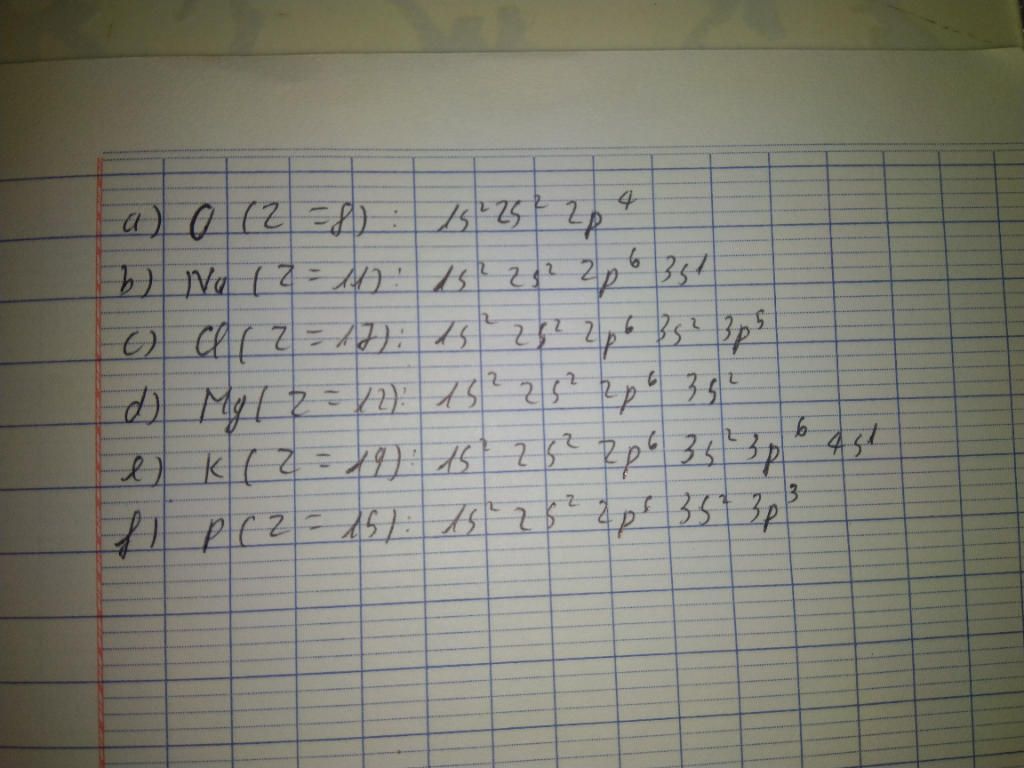 a) O (Z = 8) : 1s² 2s² 2p⁴
b) Na (Z = 11) : 1s² 2s² 2p⁶ 3s¹
c) Cl (Z = 17) : 1s² 2s² 2p⁶ 3s² 3p⁵
d) Mg (Z = 12) : 1s² 2s² 2p⁶ 3s²
e) K (Z = 19) : 1s² 2s² 2p⁶ 3s² 3p⁶ 4s¹
f) P (Z = 15) : 1s² 2s² 2p⁶ 3s² 3p³